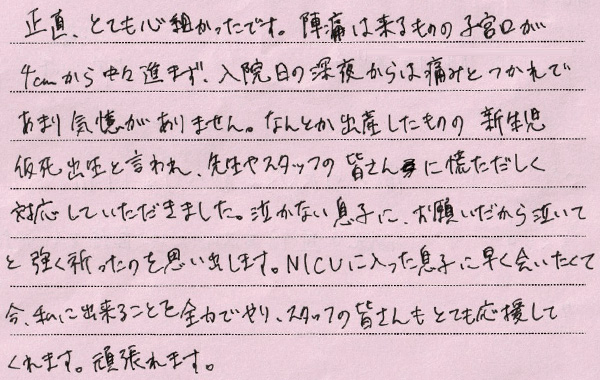 正直、とても心細かったです。陣痛は来るものの子宮口が
4cmから中々進まず、入院日の深夜からは痛みとつかれで
あまり記憶がありません。なんとか出産したものの 新生児
仮死出生と言われ、先生やスタッフの皆さんに慌ただしく
対応していただきました。泣かない息子に、お願いだから泣いて
と強く祈ったのを思い出します。NICUに入った息子に早く会いたくて
今、私に出来ることを全力でやり、スタッフの皆さんもとても応援して
くれます。頑張れます。